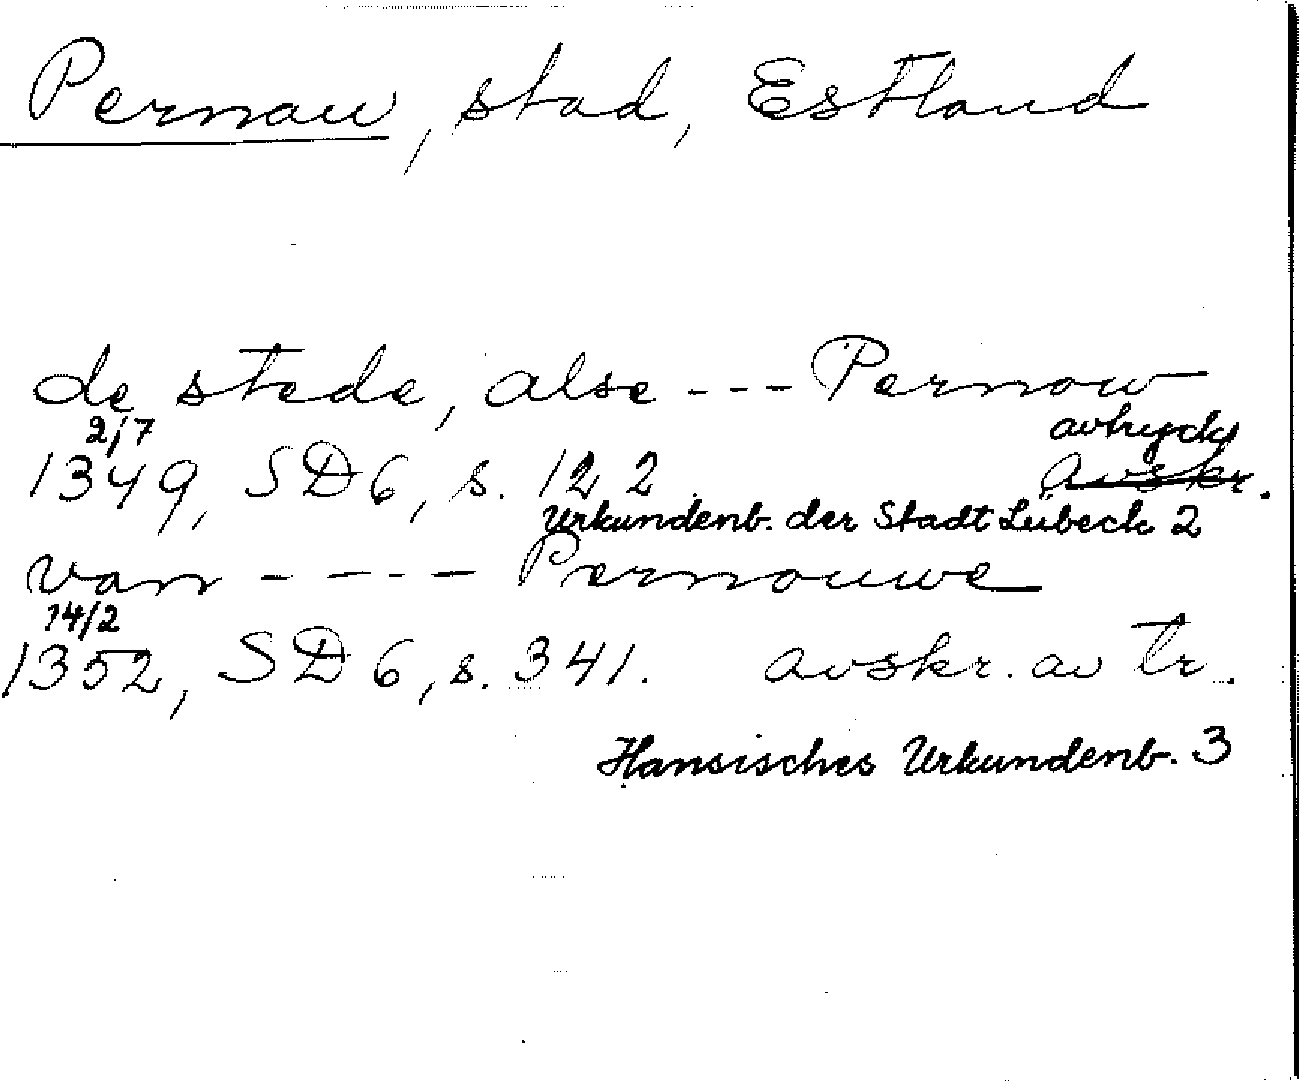 Pernau, stad, Estland
de stede, alse --- Pernow
2/7 avtryck
1349, SD 6, s. 122. Avskr.
Urkundenb. der Stadt Lübeck 2
van ---- Pernouwe
14/2
1352, SD 6, s. 341. avskr. av tr.
Hansisches Urkundenb. 3